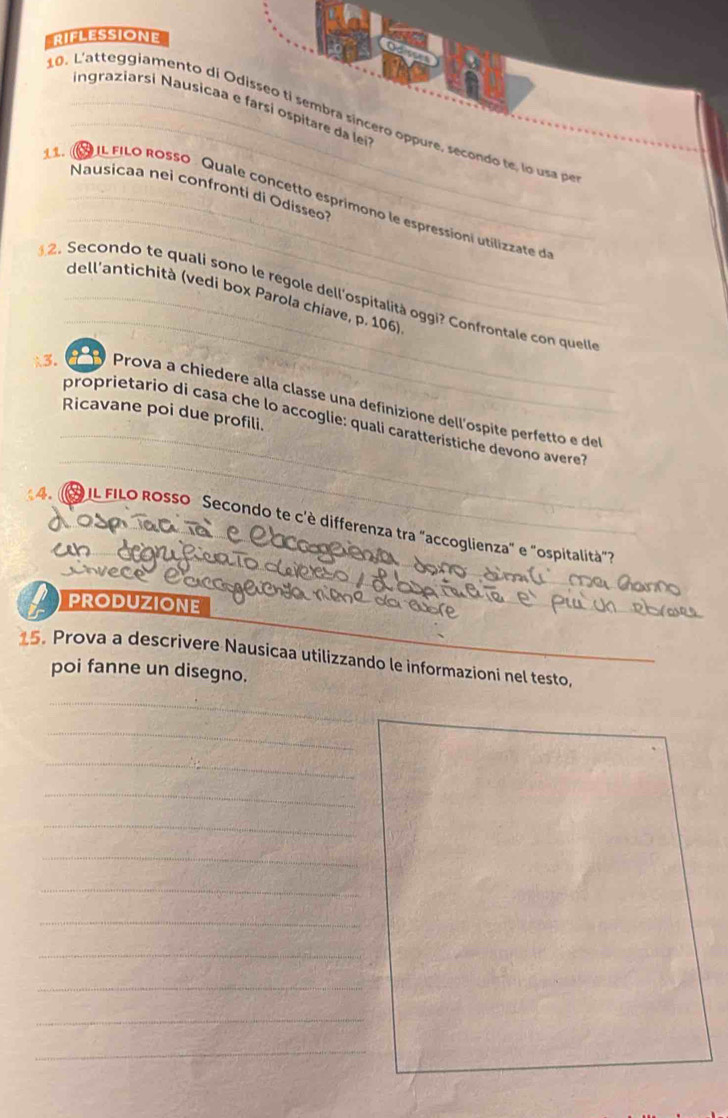 Odisseo
RIFLESSIONE
10. L'atteggiamento di Odisseo ti sembra sincero oppure, secondo te, lo usa per
ingraziarsi Nausicaa e farsi ospitare da lei?
11. IL FILO ROSSO Quale concetto esprimono le espressioni utilizzate da
Nausicaa nei confronti di Odisseo?
12. Secondo te quali sono le regole dell'ospitalità oggi? Confrontale con quelle
dell'antichità (vedi box Parola chiave, p. 106).
13. Prova a chiedere alla classe una definizione dell'ospite perfetto e del
proprietario di casa che lo accoglie: quali caratteristiche devono avere?
Ricavane poi due profili.
14. IL FILO ROSSO Secondo te c'è differenza tra "accoglienza" e "ospitalità"?
e sono simili ma hanno
un è più un
invece da
PRODUZIONE
15. Prova a descrivere Nausicaa utilizzando le informazioni nel testo,
poi fanne un disegno.